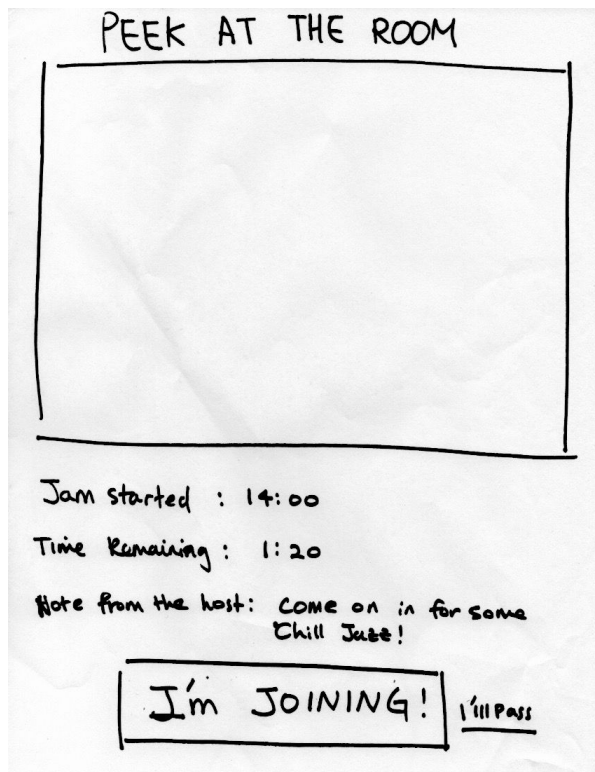 PEEK AT THE ROOM
Jam started : 14:00
Time Remaining : 1:20
Note from the host: Come on in for some
Chill Jazz!
I'm JOINING!
I'll Pass